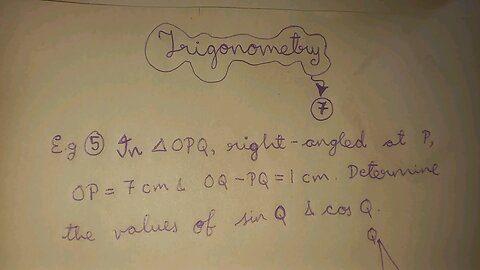 Trigonometry
7
E.g 5 In △OPQ, right-angled at P,
OP = 7 cm & OQ - PQ = 1 cm. Determine
the values of sin Q & cos Q.
Q